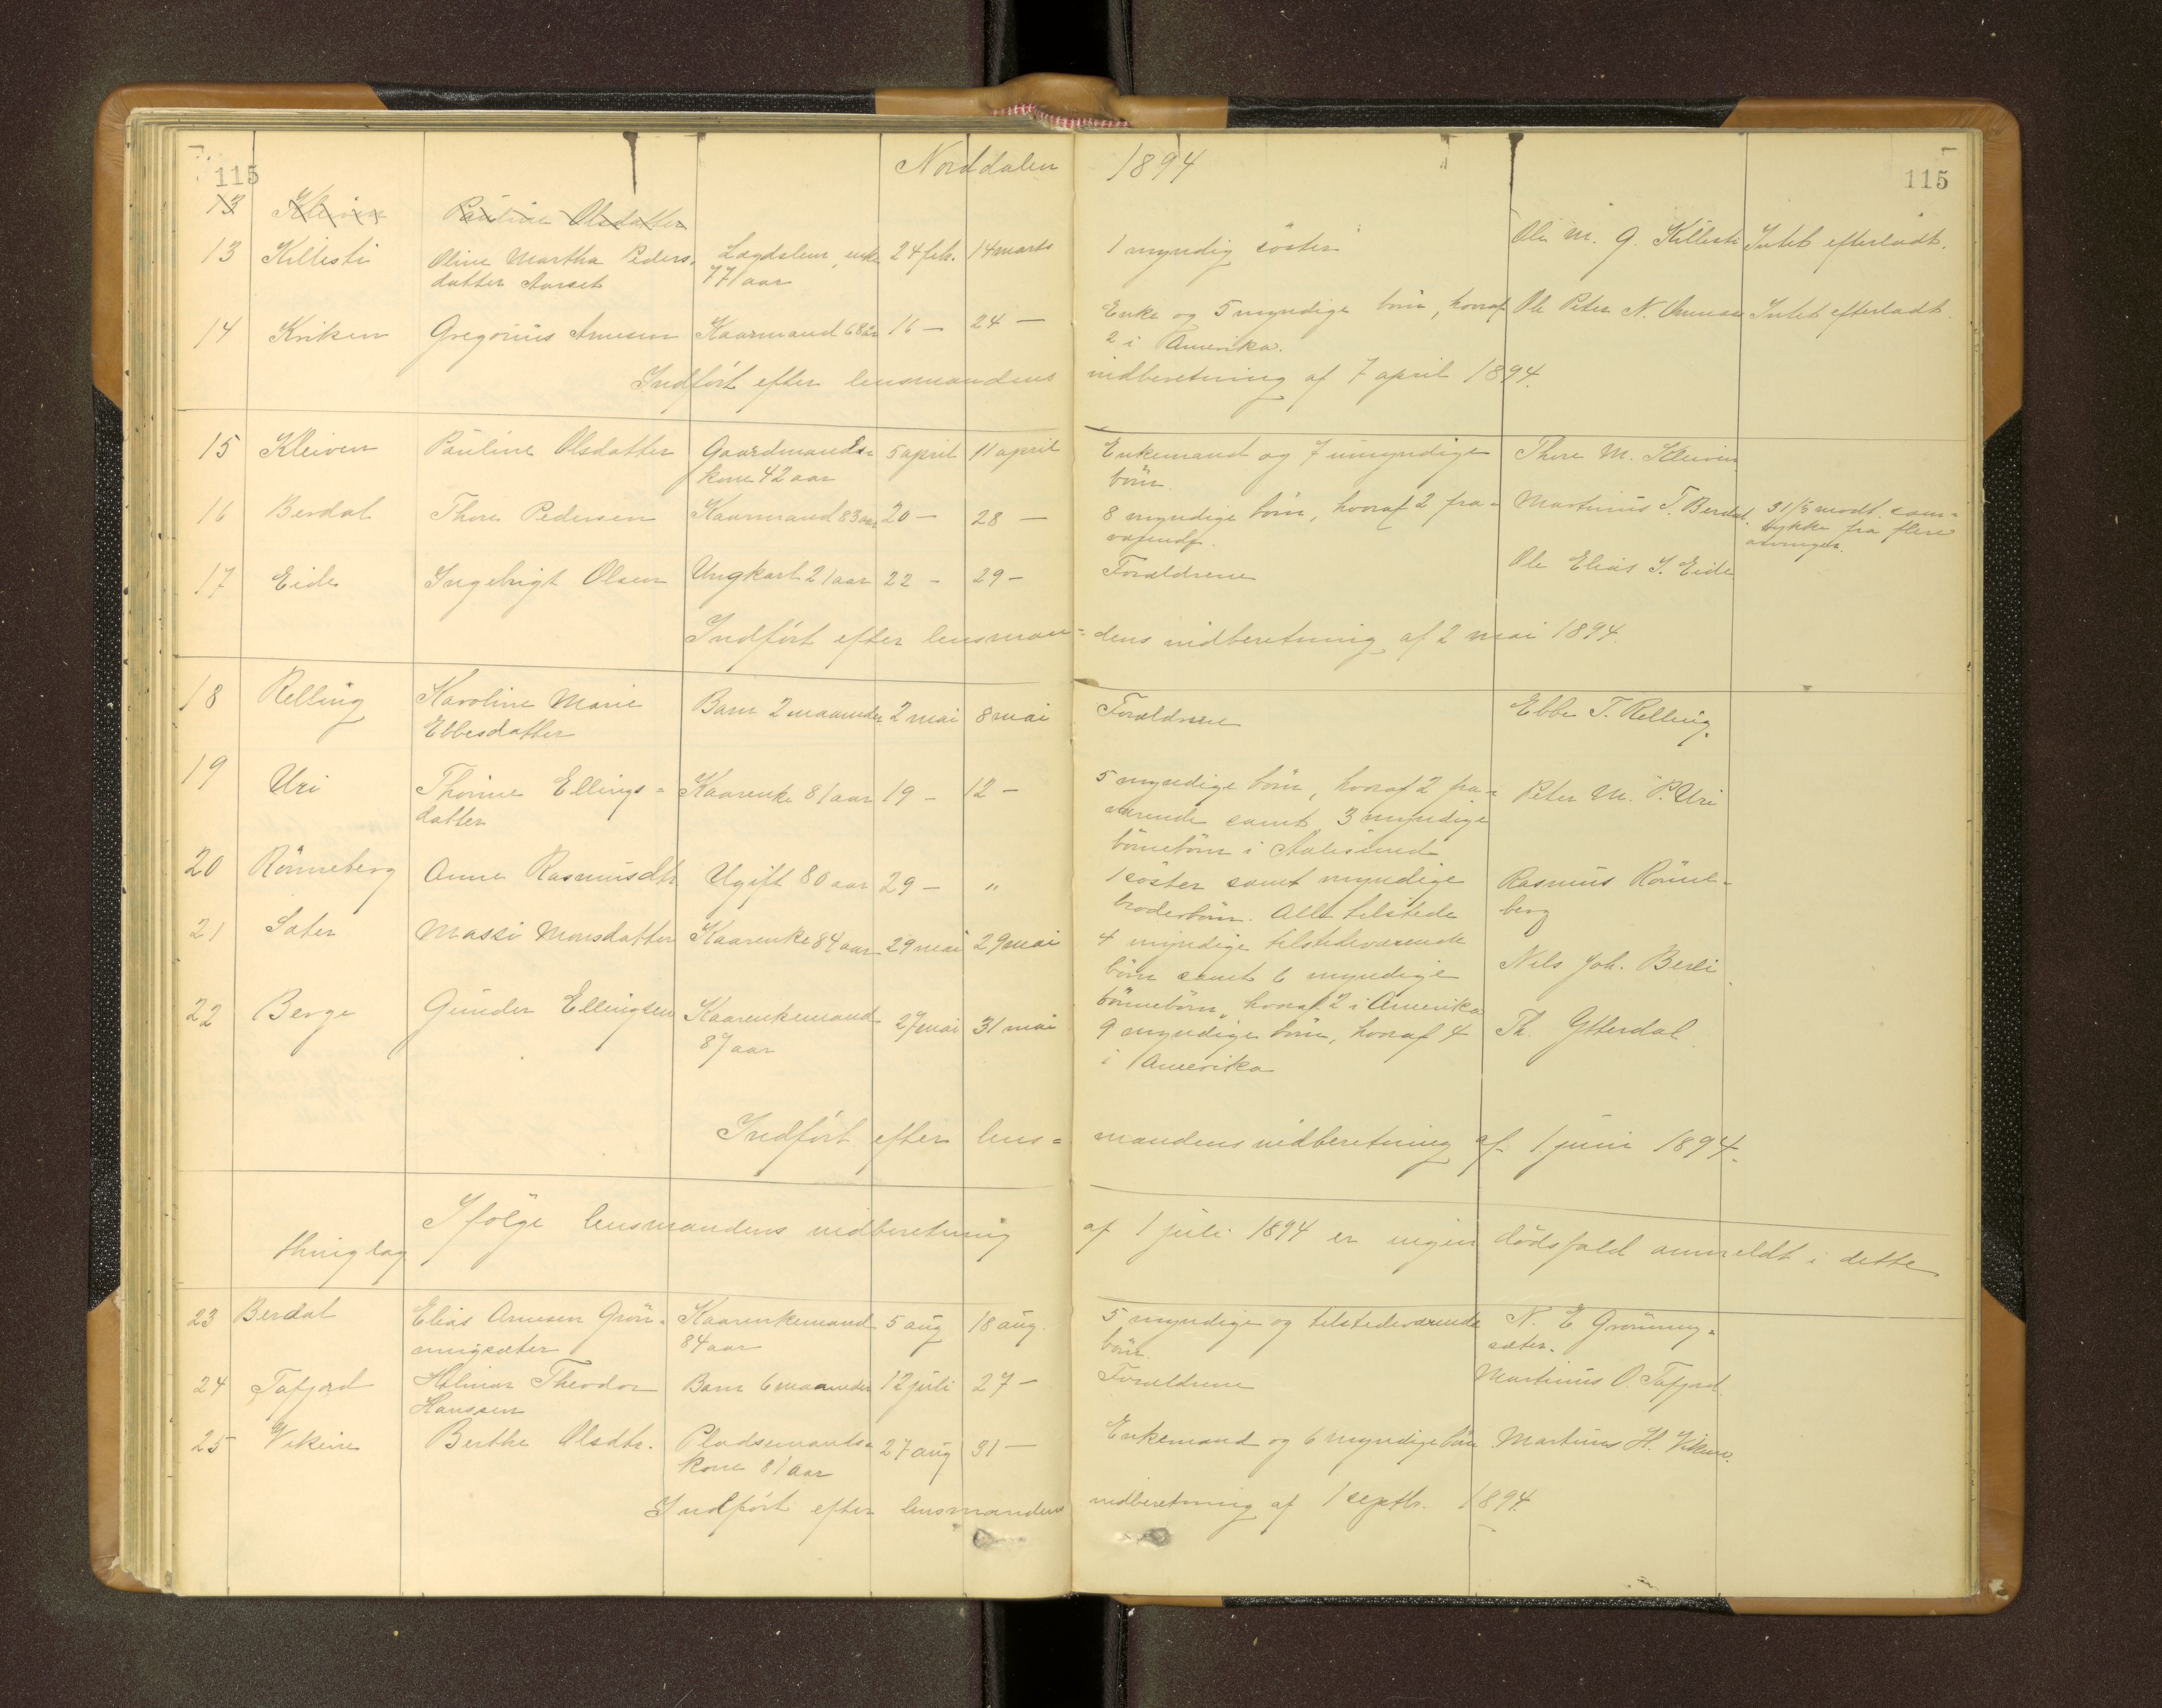 115 Norddalen 1894 115
13 Kleiven Pauline Olsdatter
13 Killesti Oline Martha Peders- Lægdslem, enke 24 feb. 14 marts 1 myndig søster Ole M. G. Killesti Intet efterladt.
datter Aarset 77 aar
14 Kriken Gregorius Arnesen Kaarmand 68 aar 16 — 24 — Enke og 5 myndige børn, hvoraf Ole Peter N. Intet efterladt.
2 i Amerika.
Indført efter lensmandens indberetning af 7 april 1894.
15 Kleiven Pauline Olsdatter Gaardmands- 5 april 11 april Enkemand og 7 umyndige Thore M. Kleiven
kone 42 aar børn.
16 Berdal Thore Pedersen Kaarmand 83 aar 20 — 28 — 8 myndige børn, hvoraf 2 fra- Martinus T. Berdal. 31/5 modt. sam-
værende. tykke fra flere
arvinger.
17 Eide Ingebrigt Olsen Ungkarl 21 aar 22 — 29 — Forældrene Ole Elias I. Eide
Indført efter lensman- dens indberetning af 2 mai 1894.
18 Relling Karoline Marie Barn 2 maaneder 2 mai 8 mai Forældrene Ebbe T. Relling.
Ebbesdatter
19 Uri Thorine Ellings- Kaarenke 81 aar 19 — 12 — 5 myndige børn, hvoraf 2 fra- Peter M. P. Uri
datter værende samt 3 myndige
børnebørn i Aalesund
20 Rönneberg Anne Rasmusdtr Ugift 80 aar 29 — " 1 søster samt myndige Rasmus Rönne-
broderbørn. Alle tilstede berg
21 Sæter Massi Monsdatter Kaarenke 84 aar 29 mai 29 mai 4 myndige tilstedeværende Nils Joh. Berli
børn samt 6 myndige
børnebørn, hvoraf 2 i Amerika
22 Berge Gunder Ellingsen Kaarenkemand 27 mai 31 mai 9 myndige børn, hvoraf 4 Th. Ytterdal.
87 aar i Amerika
Indført efter lens- mandens indberetning af 1 juni 1894.
Ifølge lensmandens indberetning af 1 juli 1894 er ingen dødsfald anmeldt i dette
thinglag
23 Berdal Elias Arnesen Grön- Kaarenkemand 5 aug 18 aug. 5 myndige og tilstedeværende N. E Grönning-
ningsæter 84 aar børn sæter.
24 Tafjord Hilmar Theodor Barn 6 maaneder 12 juli 27 — Forældrene Martinus O. Tafjord.
Hanssen
25 Viken Berthe Olsdtr. Pladsemands- 27 aug 31 — Enkemand og 6 myndige børn Martinus H. Viken.
kone 81 aar
Indført efter lensmandens indberetning af 1 septbr. 1894.